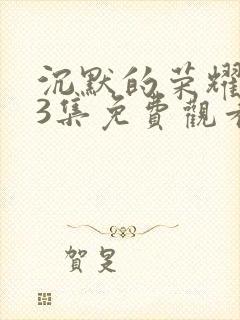 沉默的荣耀
3集免費觀看
賀是